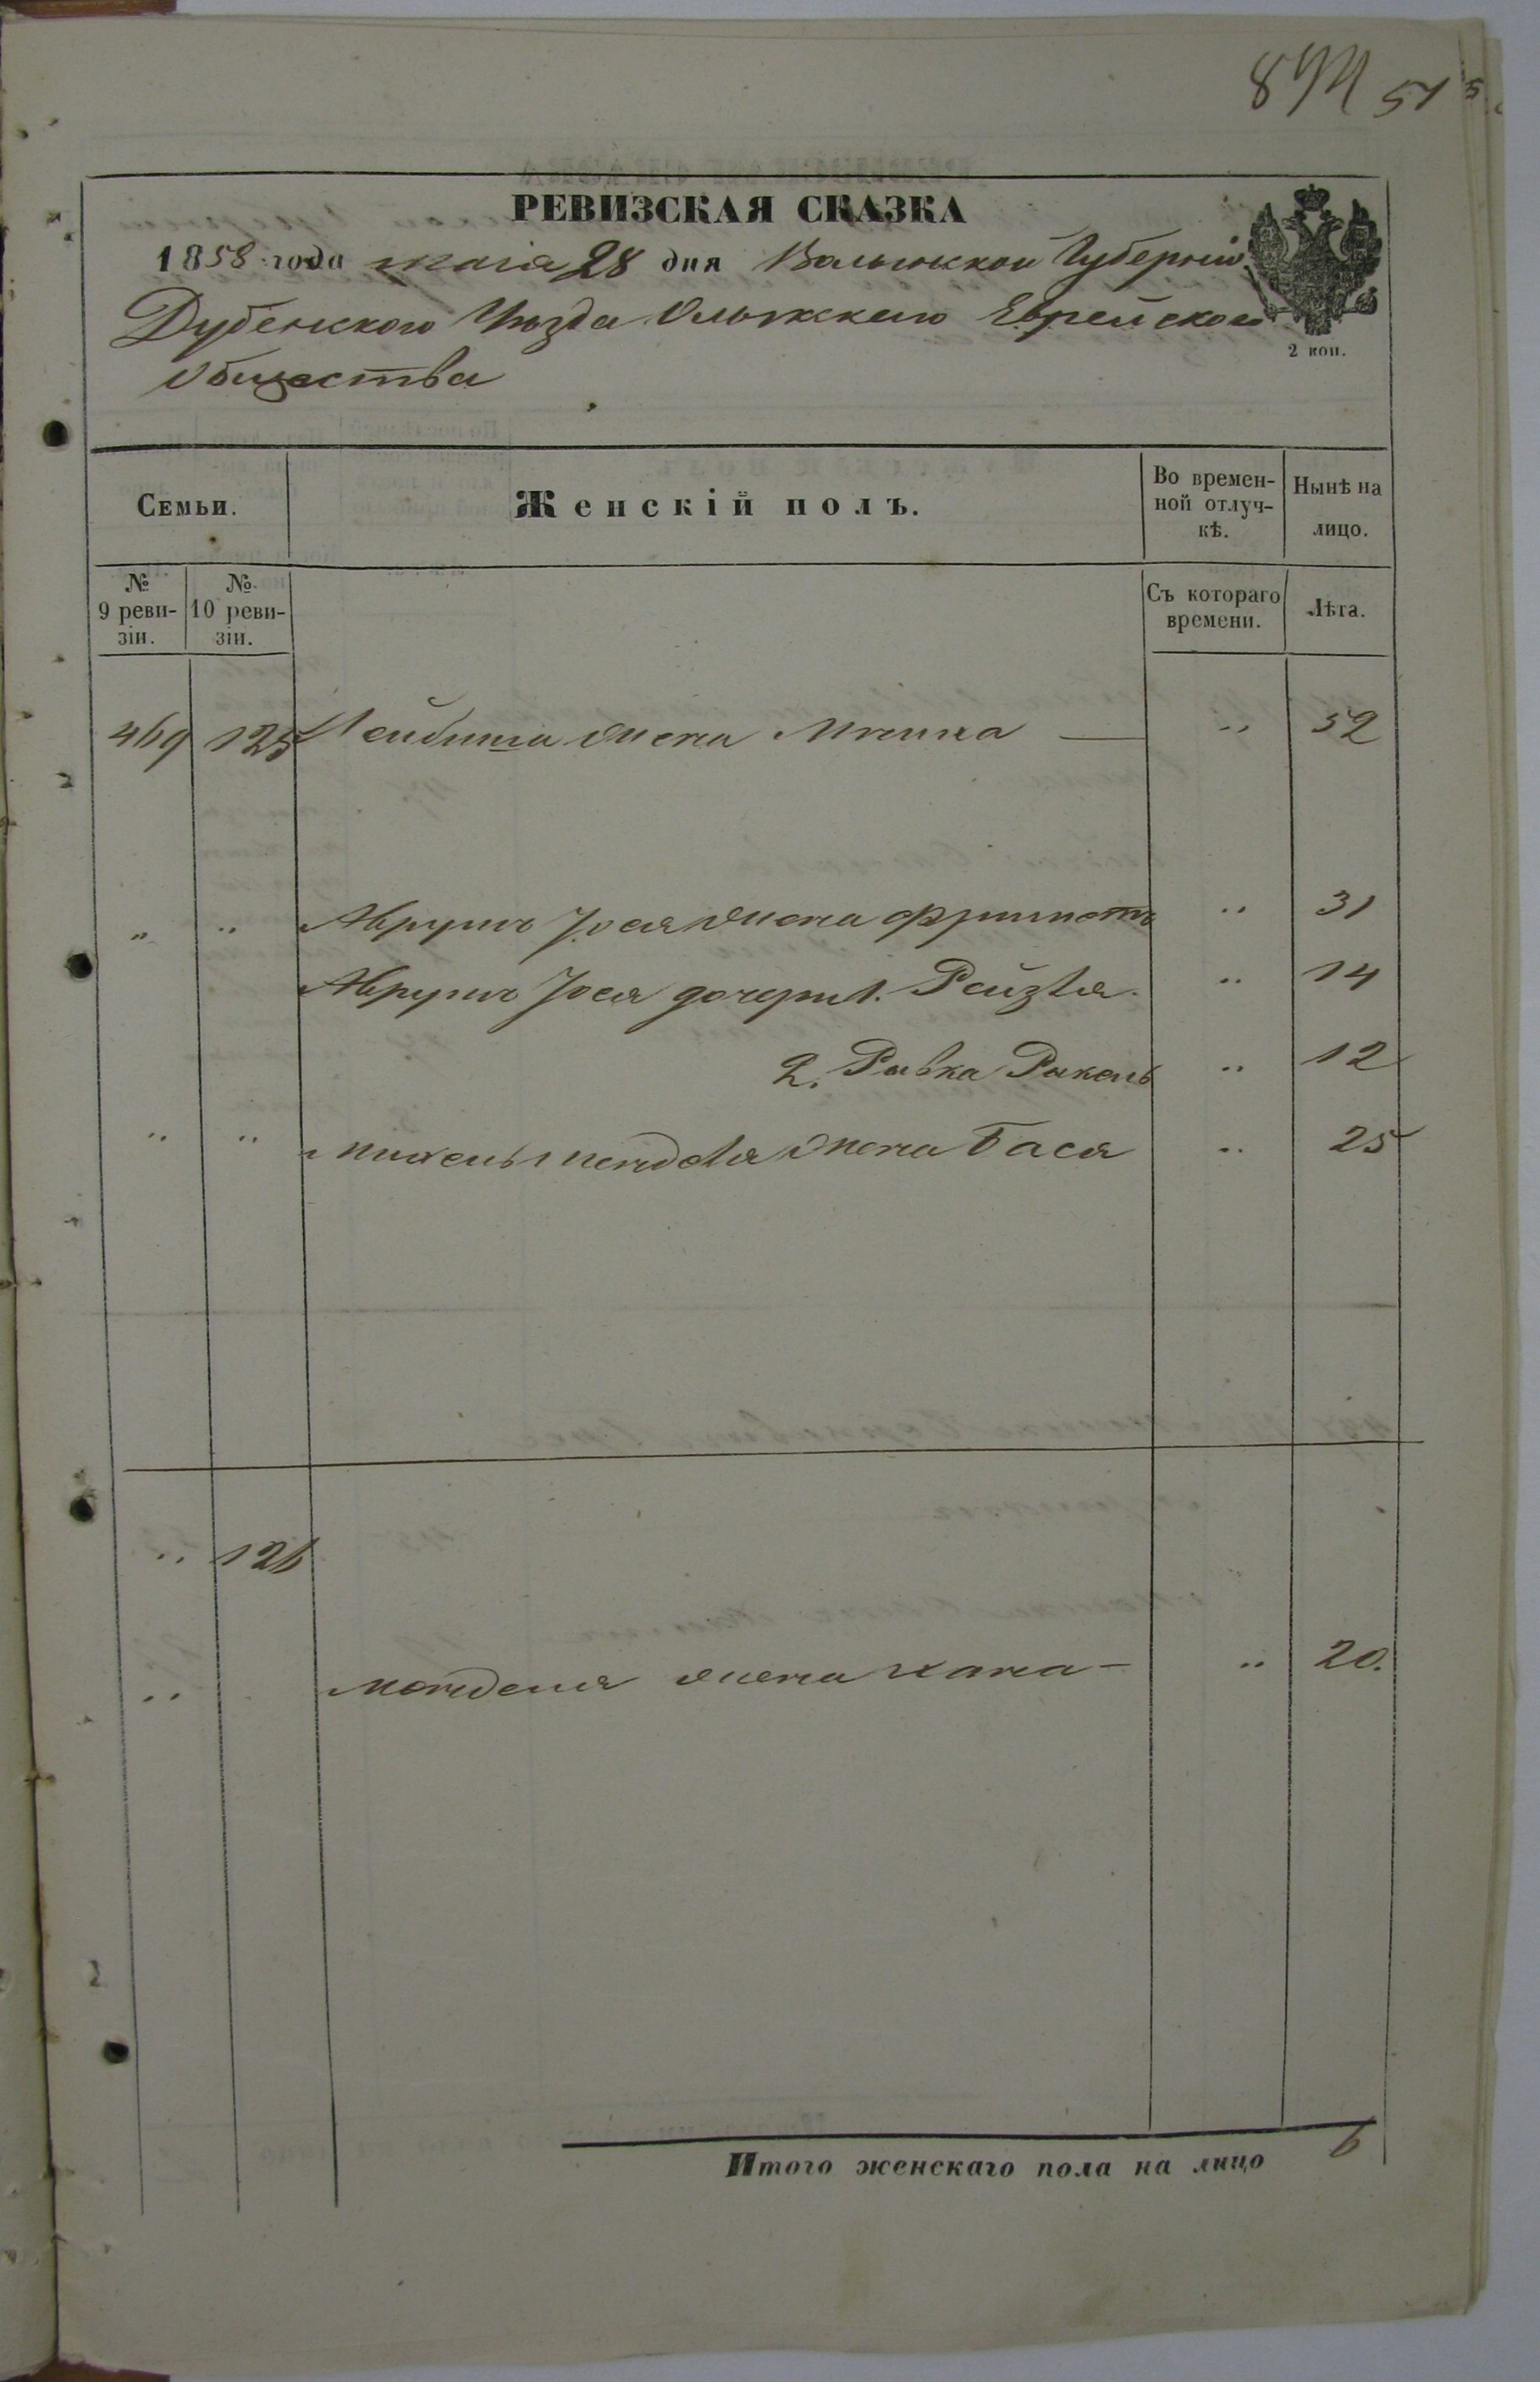 51
РЕВИЗСКАЯ СКАЗКА
1858 года мая 28 дня Волынской Губернии
Дубенского Уѣзда Олыкского Еврейского
Общества
2 коп.
Семьи.
Женскій полъ.
Во времен-
ной отлуч-
кѣ.
Нынѣ на
лицо.
№
9 реви-
зіи.
№
10 реви-
зіи.
Съ котораго
времени.
Лѣта.
469 125 Лейбиша жена " 52
" " Аврумъ Іося жена " 31
Аврумъ Іося дочери 1. Рейзля " 14
2. Ривка Рахель " 12
" " Мендля жена Бася " 25
" 126
" Менделя жена Хана — " 20.
Итого женскаго пола на лицо 6